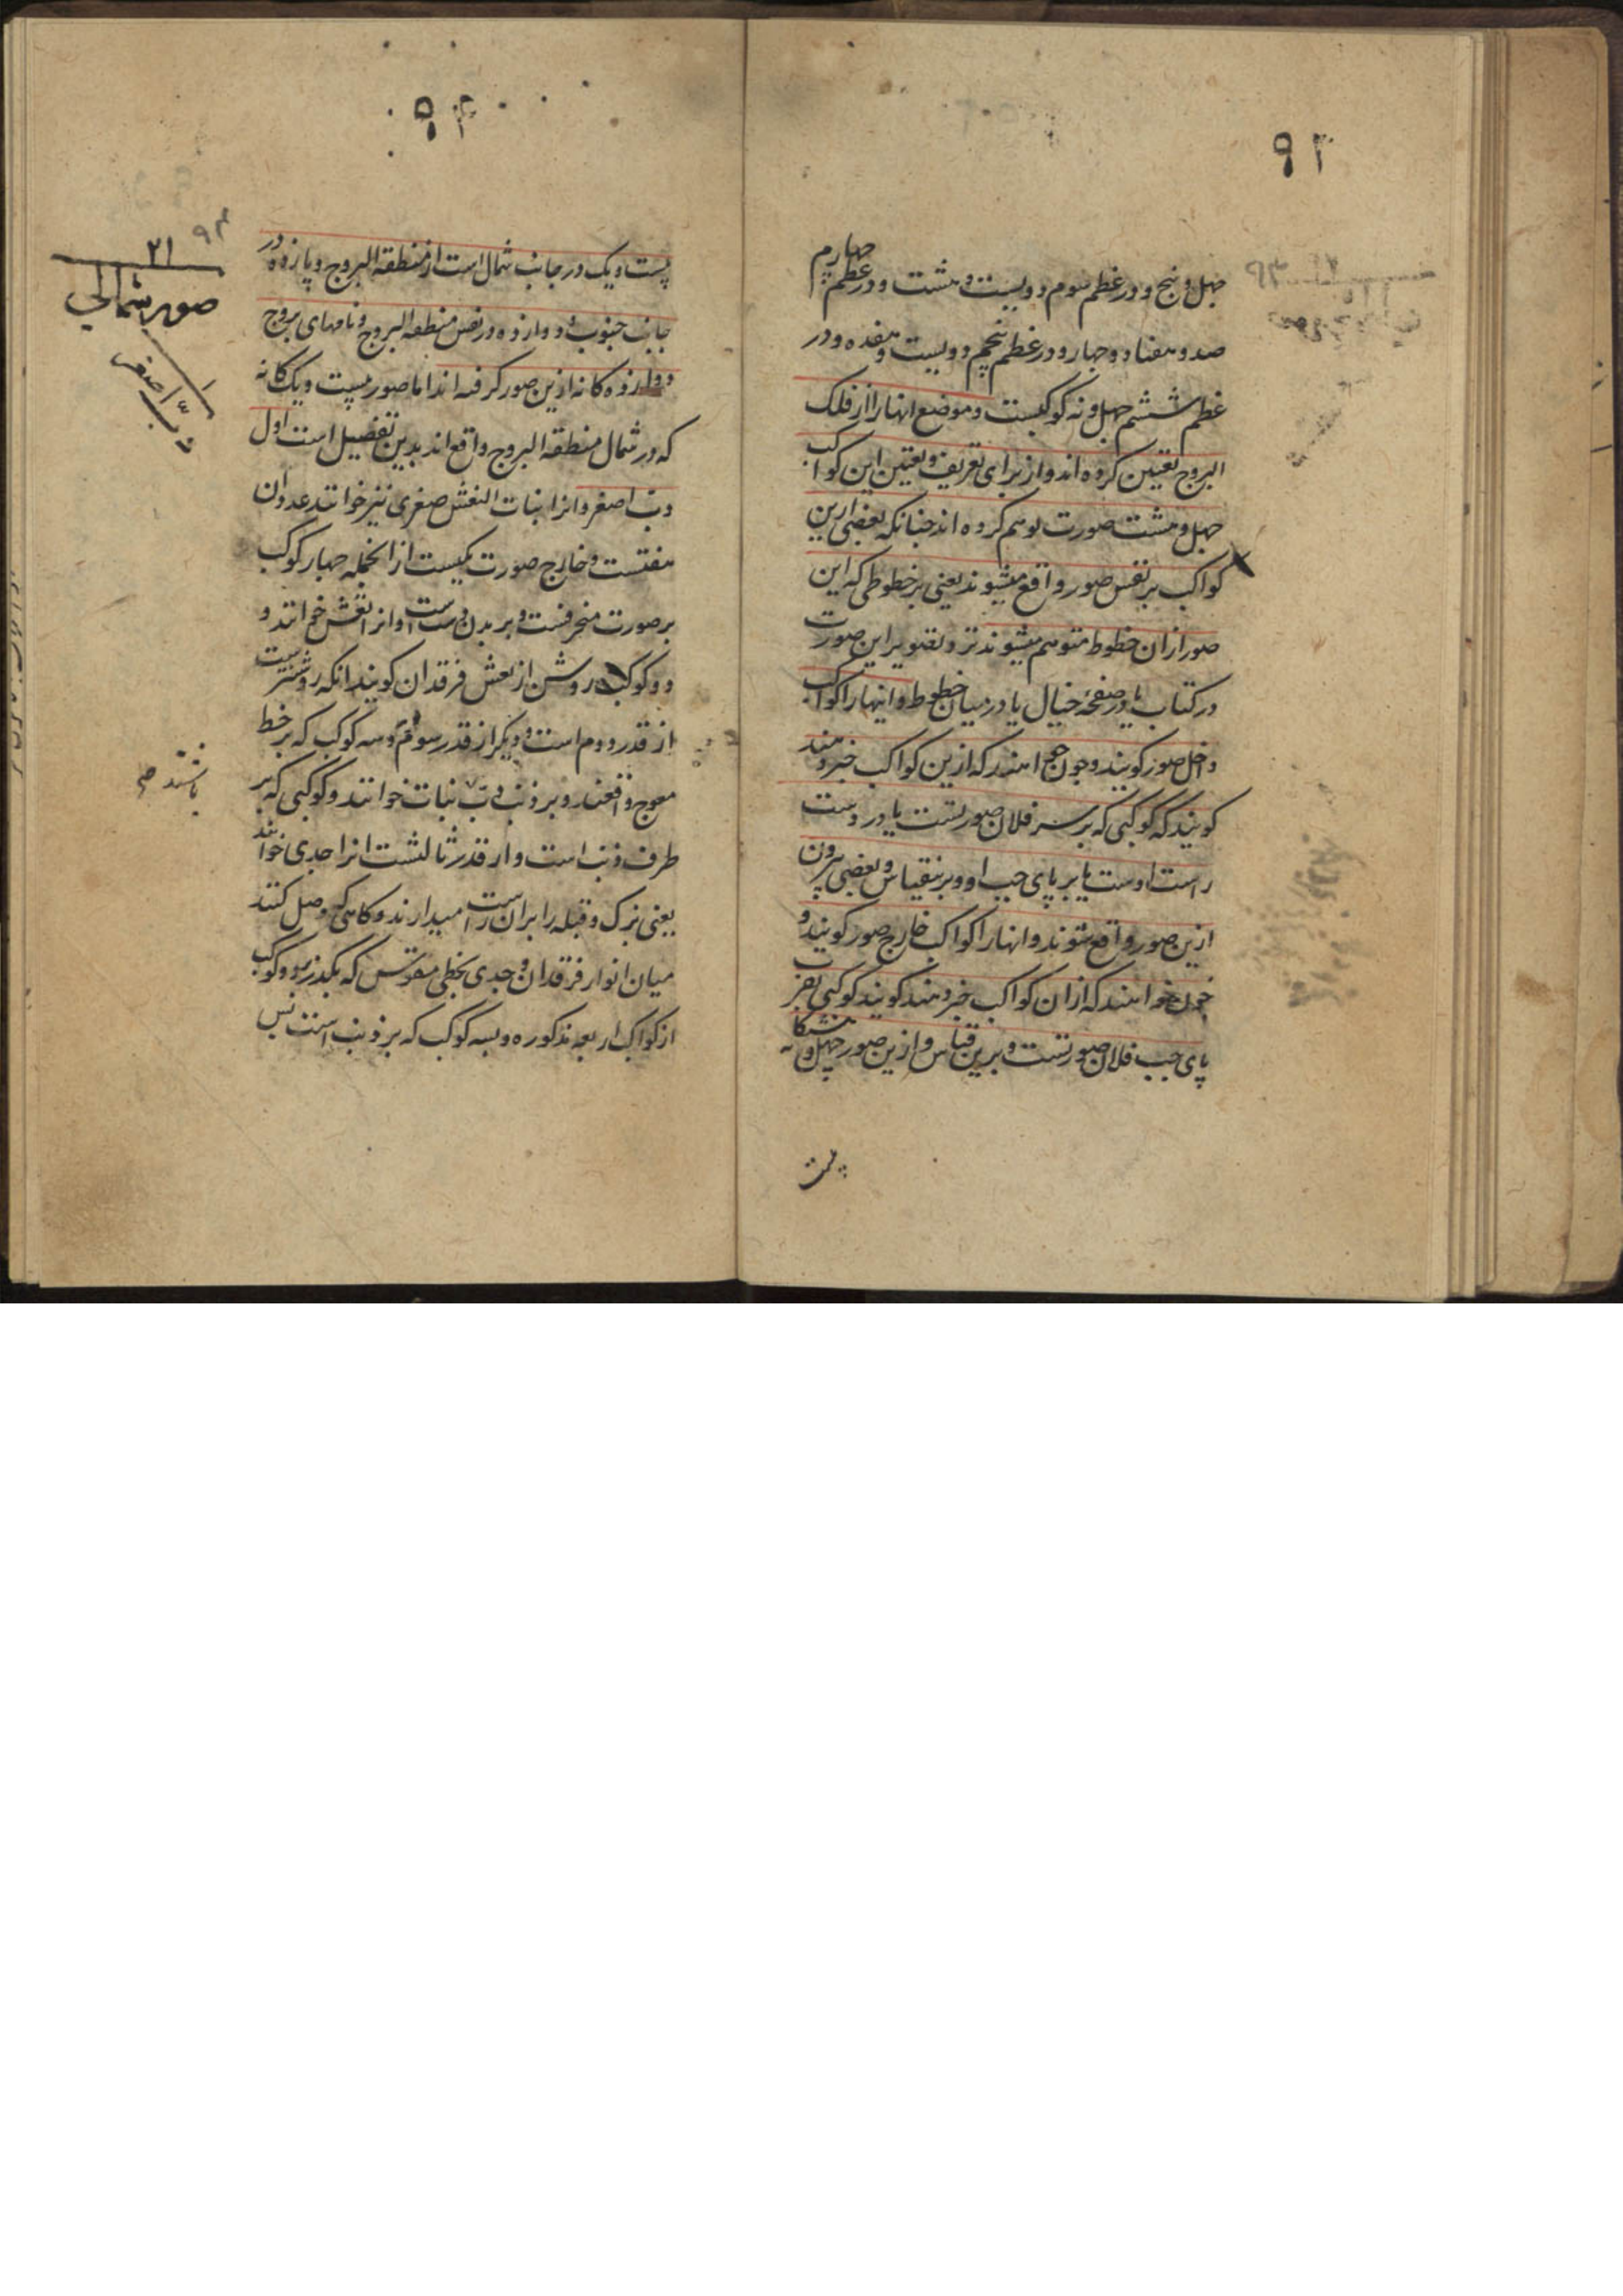 ۹۲
چهل و پنج و در عظم سوم دویست و هشت و در عظم چهارم
صد و هفتاد و چهار و در عظم پنجم دویست و هفده و در
عظم ششم چهل و نه کوکبست و موضع انها را از فلک
البروج تعیین کرده اند و از برای تعریف و تعیین این کواکب
چهل و هشت صورت توهم کرده اند چنانکه بعضی ازین
کواکب بر نفس صور واقع میشوند یعنی بر خطوطی که این
صور ازان خطوط متوهم میشوند نزد تصویر این صورت
در کتاب یا در صفحه خیال یا در میان خطوط و اینها را کواکب
داخل صور کویند و چون خواهند که ازین کواکب خبر دهند
کویند که کوکبی که بر سر فلان صورتست یا در دست
راست اوست یا بر پای چپ او و برینقیاس و بعضی بیرون
ازین صور واقع شوند و انها را کواکب خارج صور کویند و
چون خواهند که ازان کواکب خبر دهند کویند کوکبی بقرب
پای چپ فلان صورتست و برین قیاس و ازین صور چهل و هشتکانه
بیست
۹۳
بیست و یک در جانب شمال است از منطقة البروج و پانزده در
جانب جنوب و دوازده در نفس منطقة البروج و نامهای بروج
دوازده کانه ازین صور کرفته اند اما صور بیست و یک کانه
که در شمال منطقة البروج واقع اند بدین تفصیل است اول
دب اصغر و انرا بنات النعش صغری نیز خوانند عدد ان
هفتست و خارج صورت یکیست از انجمله چهار کوکب
بر صورت منحرفست و بر بدن دب است و انرا نعش خوانند و
دو کوکب روشن از نعش فرقدان کویند انکه روشنترست
از قدر دوم است و دیکر از قدر سوم و سه کوکب که بر خط
معوج واقعند و بر ذنب دب بنات خوانند و کوکبی که بر
طرف ذنب است و از قدر ثالثست انرا جدی خوانند
یعنی بزک و قبله را بران راست میدارند و کاهی وصل کنند
میان انوار فرقدان و جدی بخطی مقوس که بکذرد بدو کوکب
از کواکب اربعه مذکوره و بسه کوکب که بر ذنب است پس
۹۳
۲۱
صور شمالی
۱
دب اصغر
باشند صح